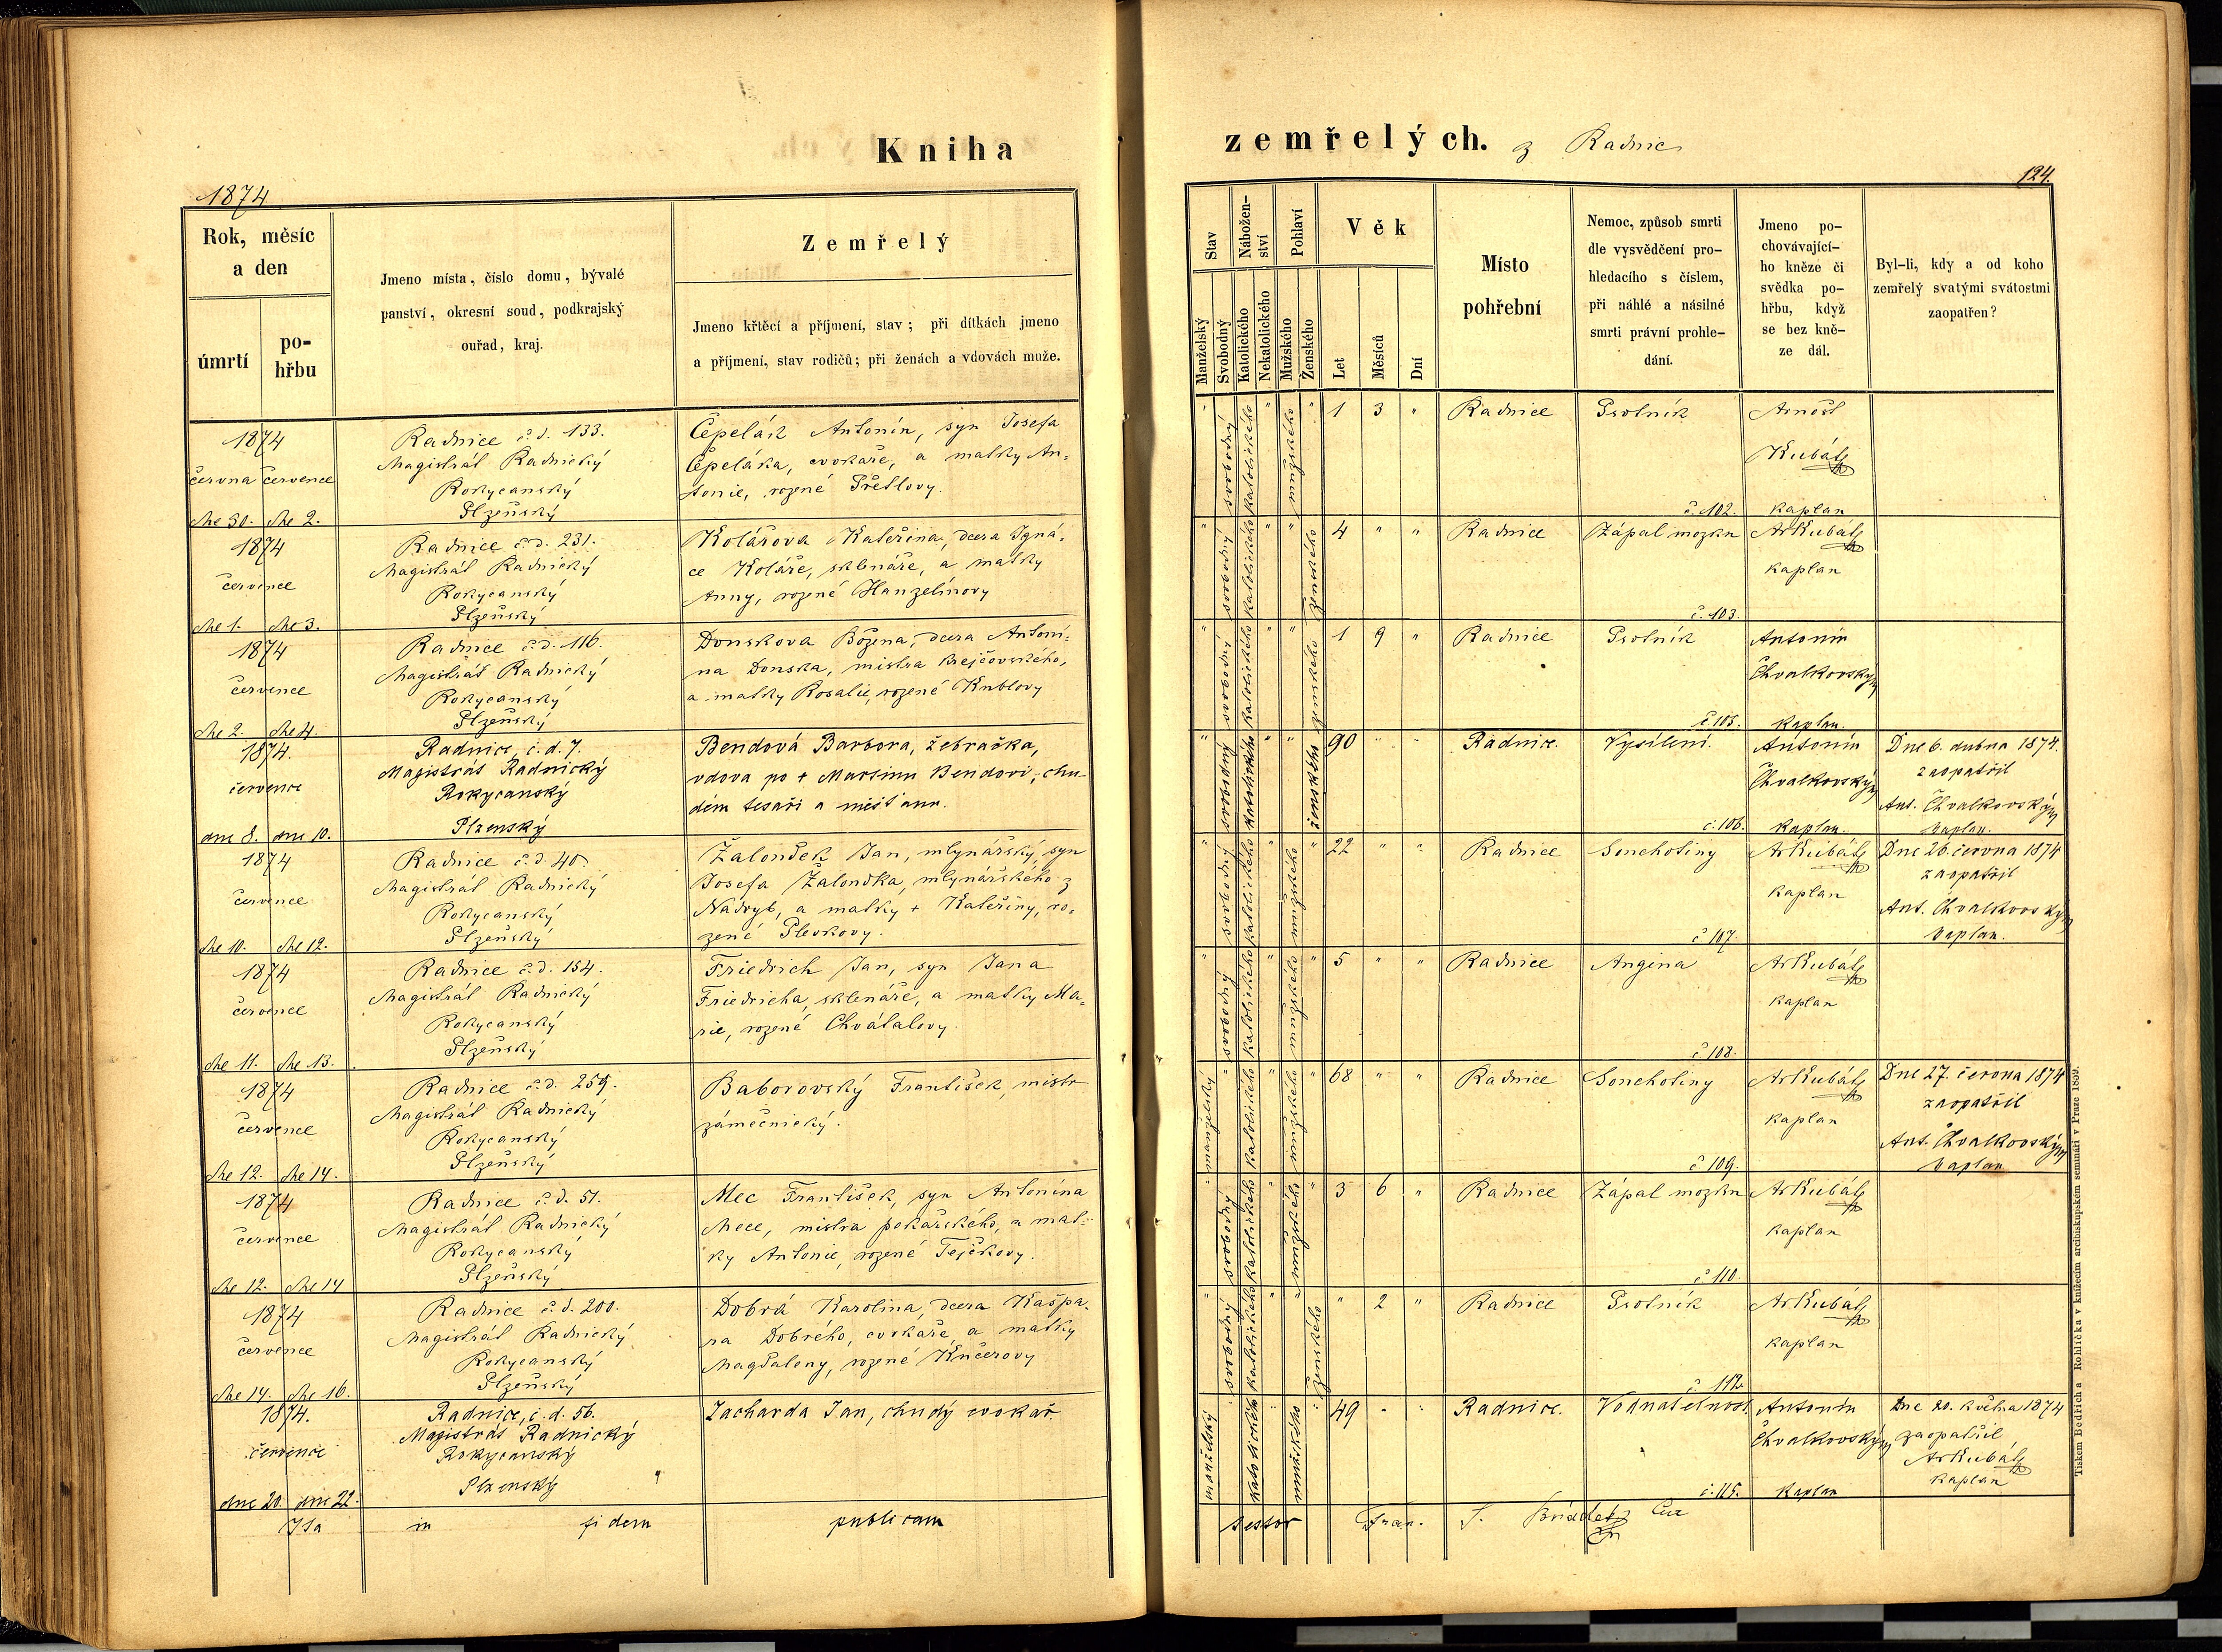 Kniha
1874
Rok, měsíc
a den
úmrtí
po-
hřbu
Jmeno místa, číslo domu, bývalé
panství, okresní soud, podkrajský
ouřad, kraj.
Zemřelý
Jmeno křtěcí a příjmení, stav; při dítkách jmeno
a příjmení, stav rodičů; při ženách a vdovách muže.
1874
června července
dne 30. dne 2.
Radnice č. d. 133.
Magistrát Radnický
Rokycanský
Plzeňský
Čepelák Antonín, syn Josefa
Čepeláka, cvokaře, a matky An-
tonie, rozené
1874
července
dne 1. dne 3.
Radnice č. d. 231.
Magistrát Radnický
Rokycanský
Plzeňský
Kolářova Kateřina, dcera Igná-
ce Koláře, sklenáře, a matky
Anny, rozené Hanzelínovy
1874
července
dne 2. dne 4.
Radnice č. d. 116.
Magistrát Radnický
Rokycanský
Plzeňský
Donskova Božena, dcera Antoní-
na Donska, mistra krejčovského,
a matky Rosalie, rozené
1874.
července
dne 8. dne 10.
Radnice, č. d. 7.
Magistrát Radnický
Rokycanský
Plzenský
Bendová Barbora, žebračka,
vdova po + Martinu Bendovi, chu-
dém tesaři a měšťanu.
1874
července
dne 10. dne 12.
Radnice č. d. 40.
Magistrát Radnický
Rokycanský
Plzeňský
Žaloudek Jan, mlynářský, syn
Josefa Žaloudka, mlynářského z
Nádryb, a matky + Kateřiny, ro-
zené
1874
července
dne 11. dne 13.
Radnice č. d. 154.
Magistrát Radnický
Rokycanský
Plzeňský
Friedrich Jan, syn Jana
Friedricha, sklenáře, a matky Ma-
rie, rozené Chvátalovy.
1874
července
dne 12. dne 14.
Radnice č. d. 259.
Magistrát Radnický
Rokycanský
Plzeňský
Baborovský František, mistr
zámečnický.
1874
července
dne 12. dne 14
Radnice č. d. 51.
Magistrát Radnický
Rokycanský
Plzeňský
Mec František, syn Antonína
Mece, mistra pekařského, a mat-
ky Antonie, rozené Tejčkovy.
1874
července
dne 14. dne 16.
Radnice č. d. 200.
Magistrát Radnický
Rokycanský
Plzeňský
Dobrá Karolina, dcera Kašpa-
ra Dobrého, cvokaře, a matky
Magdaleny, rozené Kučerovy
1874.
července
dne 20. dne 22.
Radnice, č. d. 56.
Magistrát Radnický
Rokycanský
Plzenský
Zacharda Jan, chudý cvokař.
Ita in fidem publicam
zemřelých. z Radnic
124.
Stav
Nábožen-
ství
Pohlaví
Věk
Manželský
Svobodný
Katolického
Nekatolického
Mužského
Ženského
Let
Měsíců
Dní
Místo
pohřební
Nemoc, způsob smrti
dle vysvědčení pro-
hledacího s číslem,
při náhlé a násilné
smrti právní prohle-
dání.
Jmeno po-
chovávající-
ho kněze či
svědka po-
hřbu, když
se bez kně-
ze dál.
Byl-li, kdy a od koho
zemřelý svatými svátostmi
zaopatřen?
" svobodný katolického " mužského " 1 3 " Radnice Psotník
č. 102.
Arnošt
Kubát
kaplan
" svobodný katolického " " ženského 4 " " Radnice Zápal mozku
č. 103.
Ar Kubát
kaplan
" svobodný katolického " " ženského 1 9 " Radnice Psotník
č. 105.
Antonín
Chvalkovský
kaplan.
" svobodný katolického " " ženského 90 " " Radnice. Vysílení.
č. 106.
Antonín
Chvalkovský
kaplan.
Dne 6. dubna 1874.
zaopatřil
Ant. Chvalkovský
kaplan.
" svobodný katolického " mužského " 22 " " Radnice Souchotiny
č 107.
Ar Kubát
kaplan
Dne 26. června 1874
zaopatřil
Ant. Chvalkovský
kaplan.
" svobodný katolického " mužského " 5 " " Radnice Angina
č 108.
Ar Kubát
kaplan
manželský " katolického " mužského " 68 " " Radnice Souchotiny
č 109.
Ar Kubát
kaplan
Dne 27. června 1874
zaopatřil
Ant. Chvalkovský
kaplan
" svobodný katolického " mužského " 3 6 " Radnice Zápal mozku
č 110.
Ar Kubát
kaplan
" svobodný katolického " " ženského " 2 " Radnice Psotník
č. 112.
Ar Kubát
kaplan
manželský " katolického " mužského " 49 " " Radnice. Vodnatelnost.
č. 115.
Antonín
Chvalkovský
kaplan
Dne 20. května 1874
zaopatřil
Ar Kubát
kaplan
testor Fran.
Tiskem Bedřicha Rohlíčka v knížecím arcibiskupském semináři v Praze 1859.